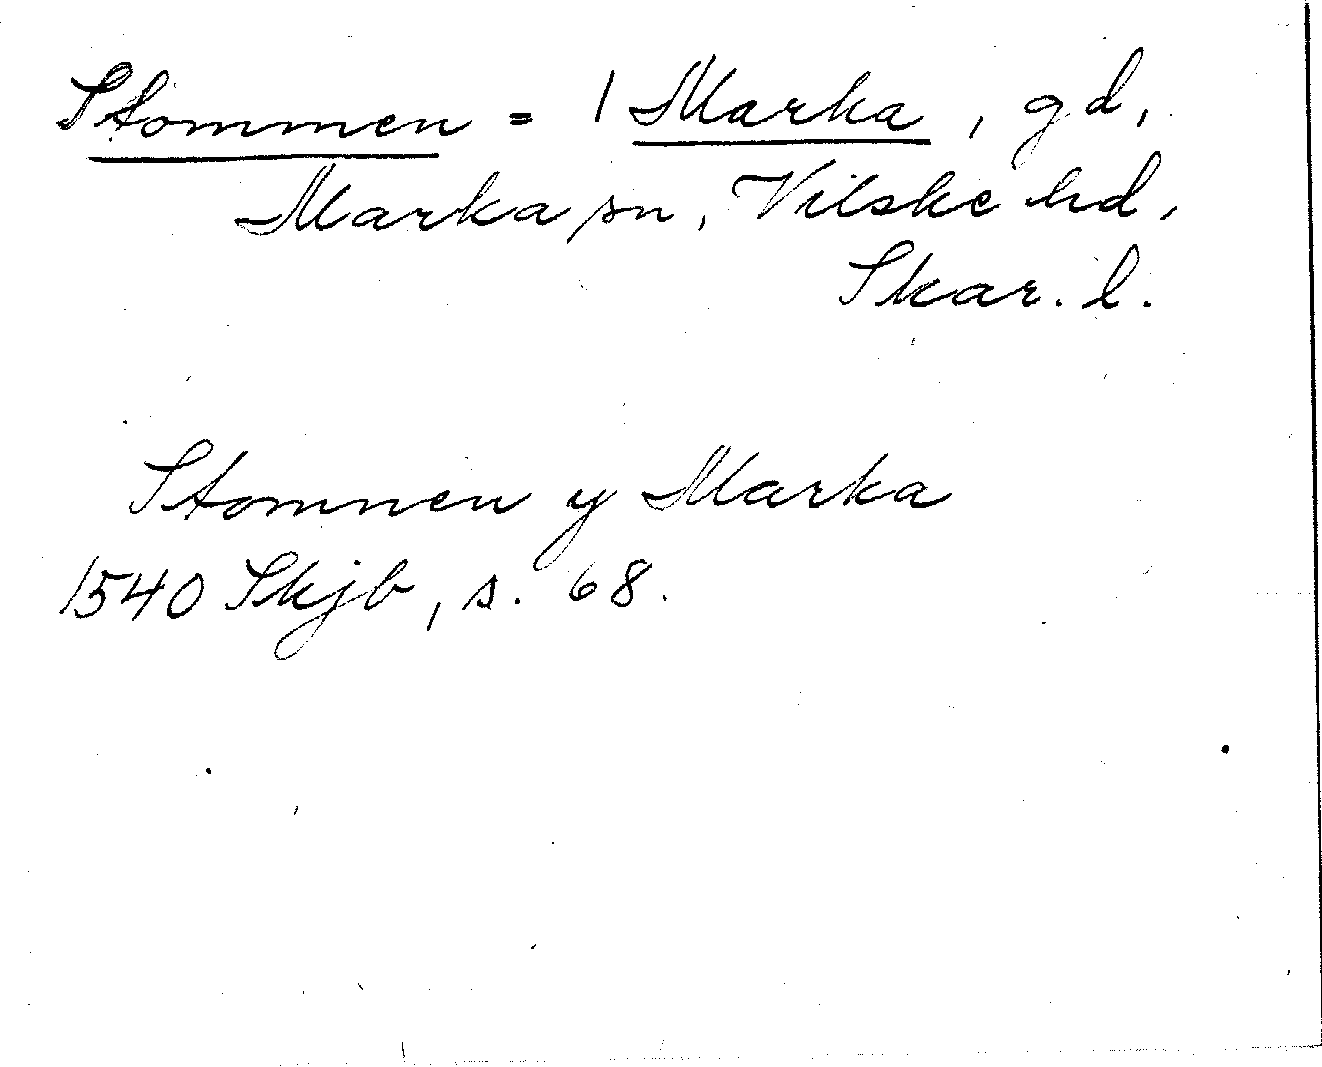 Stommen = 1 Marka, gd,
Marka sn, Vilske hd,
Skar. l.
Stomnen y Marka
1540 Skjb, s. 68.